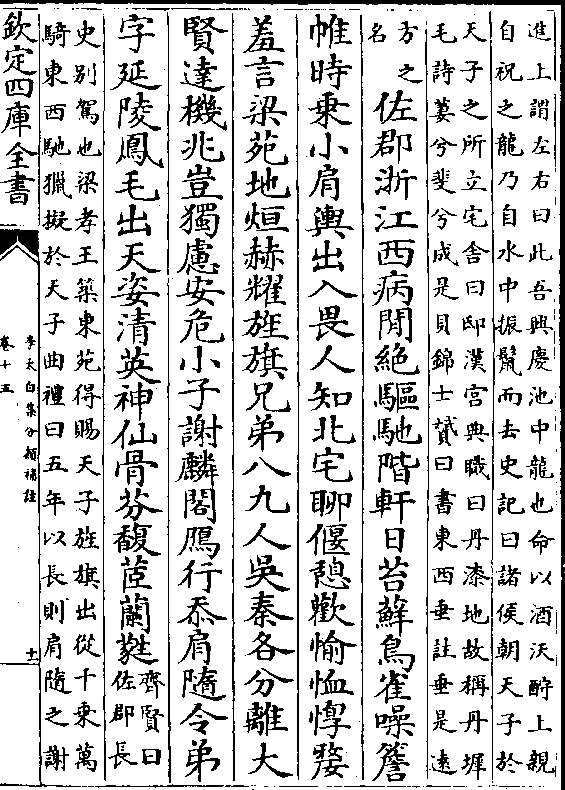 進上謂左右曰此吾興慶池中龍也命以酒沃酹上親
自祝之龍乃自水中振鬛而去史記曰諸侯朝天子於
天子之所立宅舍曰邸漢宫典職曰丹漆地故稱丹墀
毛詩萋兮斐兮成是貝錦士贇曰書東西垂註垂是遠
方之
名
佐郡浙江西病閒絶驅馳階軒日苔蘚鳥雀噪簷
帷時乘小肩輿出入畏人知北宅聊偃憇歡愉恤惸嫠
羞言梁苑地烜赫耀旌旗兄弟八九人吳秦各分離大
賢達機兆豈獨慮安危小子謝麟閣鴈行忝肩隨令弟
字延陵鳳毛出天姿清英神仙骨芬馥茝蘭蕤
齊賢曰
佐郡長
史别駕也梁孝王築東苑得賜天子旌旗出從千乘萬
騎東西馳獵擬於天子曲禮曰五年以長則肩隨之謝
欽定四庫全書
李太白集分類補註
卷十五